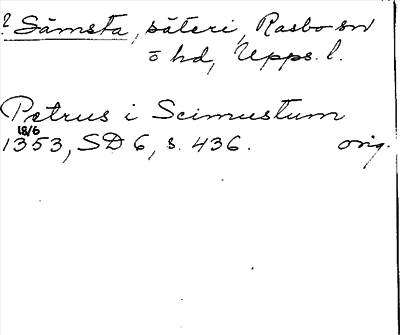 ? Sämsta, säteri, Rasbo sn
o hd, Upps. l.
Petrus i Scimustum
18/6
1353, SD 6, s. 436. orig.